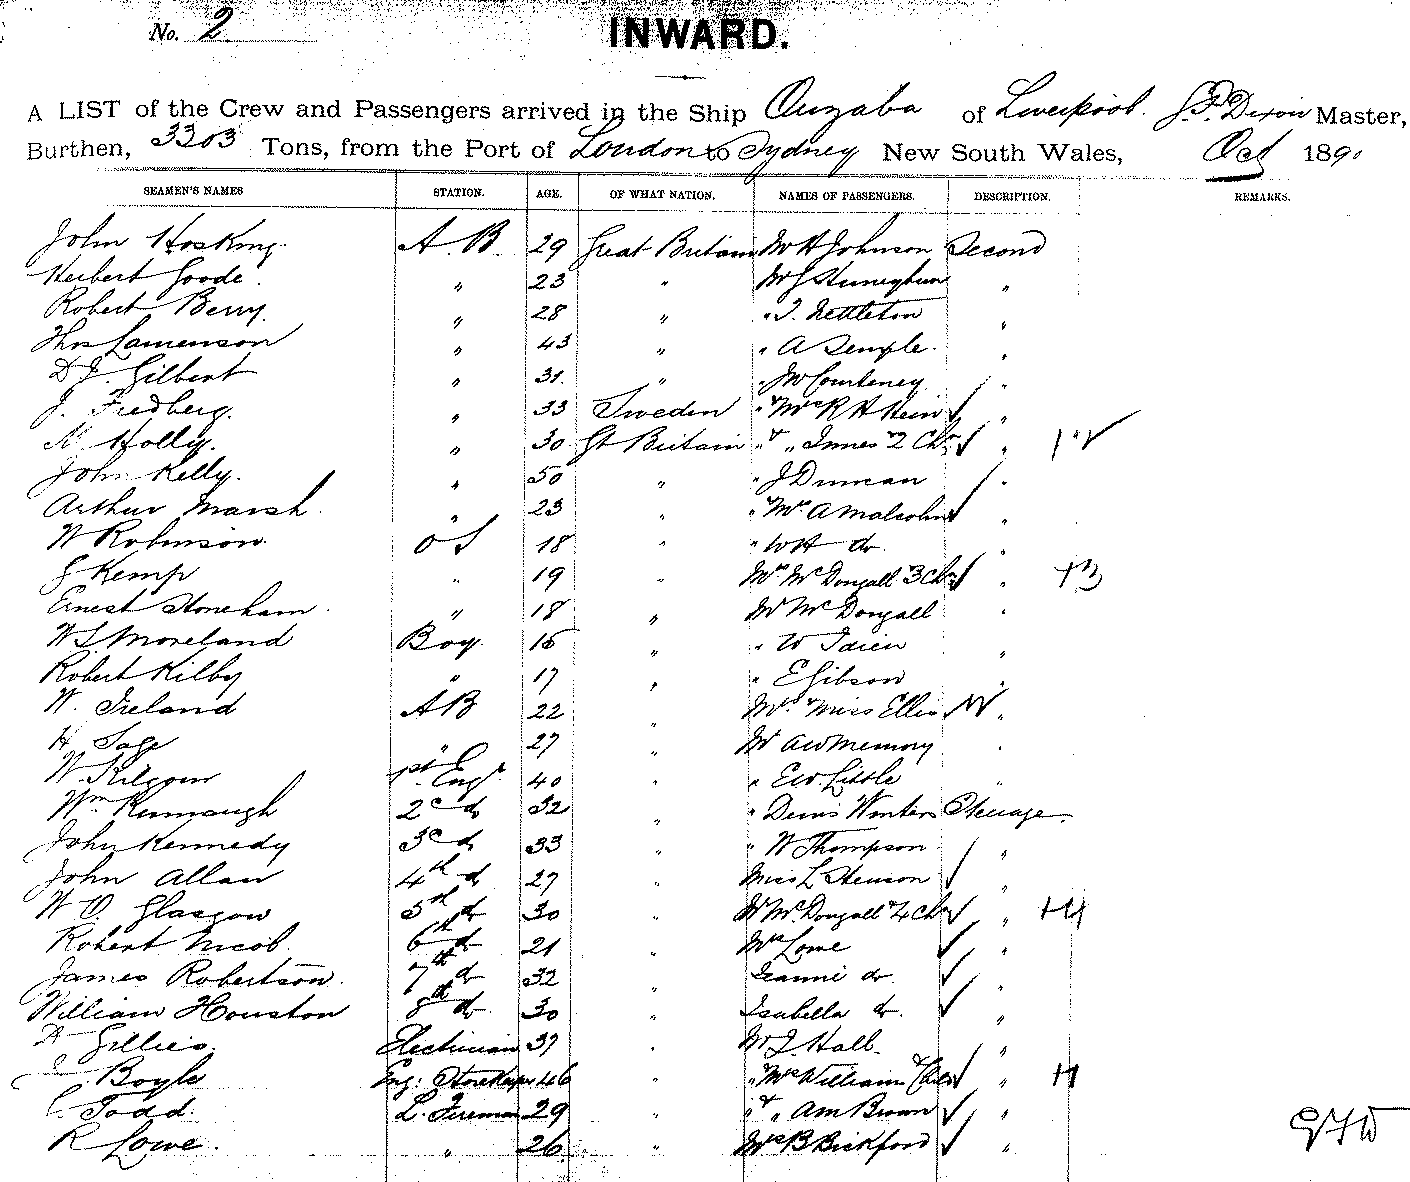 No. 2
INWARD.
A LIST of the Crew and Passengers arrived in the Ship Ouzaba of Liverpool. J.F. Dixon Master,
Burthen, 3303 Tons, from the Port of London to Sydney New South Wales, Oct 1890
SEAMEN'S NAMES STATION. AGE. OF WHAT NATION. NAMES OF PASSENGERS. DESCRIPTION. REMARKS.
John Hosking A.B. 29 Great Britain Mr H Johnson Second
Herbert Goode 23 " Mr "
Robert Berry. " 28 " " T. Nettleton "
Thos Lamenson " 43 " " A Temple. "
D J. Gilbert " 31. " " Courteney "
J. Fredberg. " 33 Sweden " & Mrs R H "
Holly. " 30 Gt Britain " & " Innes & 2 Ch "
John Kelly. " 50 " " J Duncan "
Arthur Marsh. " 23 " " Mrs A Malcolm "
W Robinson O S 18 " " WH do "
Kemp " 19 " Mrs McDougall & 3 Ch " + 3
Ernest Stoneham " 18 " Mr McDougall "
W.S. Moreland Boy. 15 " " W "
Robert Kilby " 17 " " E Gibson "
W. Ireland A B 22 " Mrs & Miss Ellis "
H Sage " 27 " Mr AW Memory "
W. Kilgour 1st Engr 40 " " EW Little "
Wm Kennaugh 2d do 32 " " Denis Winters Steerage.
John Kennedy 3d do 33 " " W Thompson "
John Allan 4th do 27 " Miss L "
W O. Glasgow 5th do 30 " McDougall & 4 Ch " +4
Robert Nicol. 6th do 21 " Mrs Lowe "
James Robertson. 7th do 32 " Jeannie do. "
William Houston 8th do 30 " Isabella do. "
Gillies. Electrician 37 " Mr J Hall. "
Boyle Eng. Storekeeper 46 " " & Mrs William & Child "
Todd. L. Fireman 29 " " & " Brown "
R Lowe. " 26. " Mrs B Bickford "